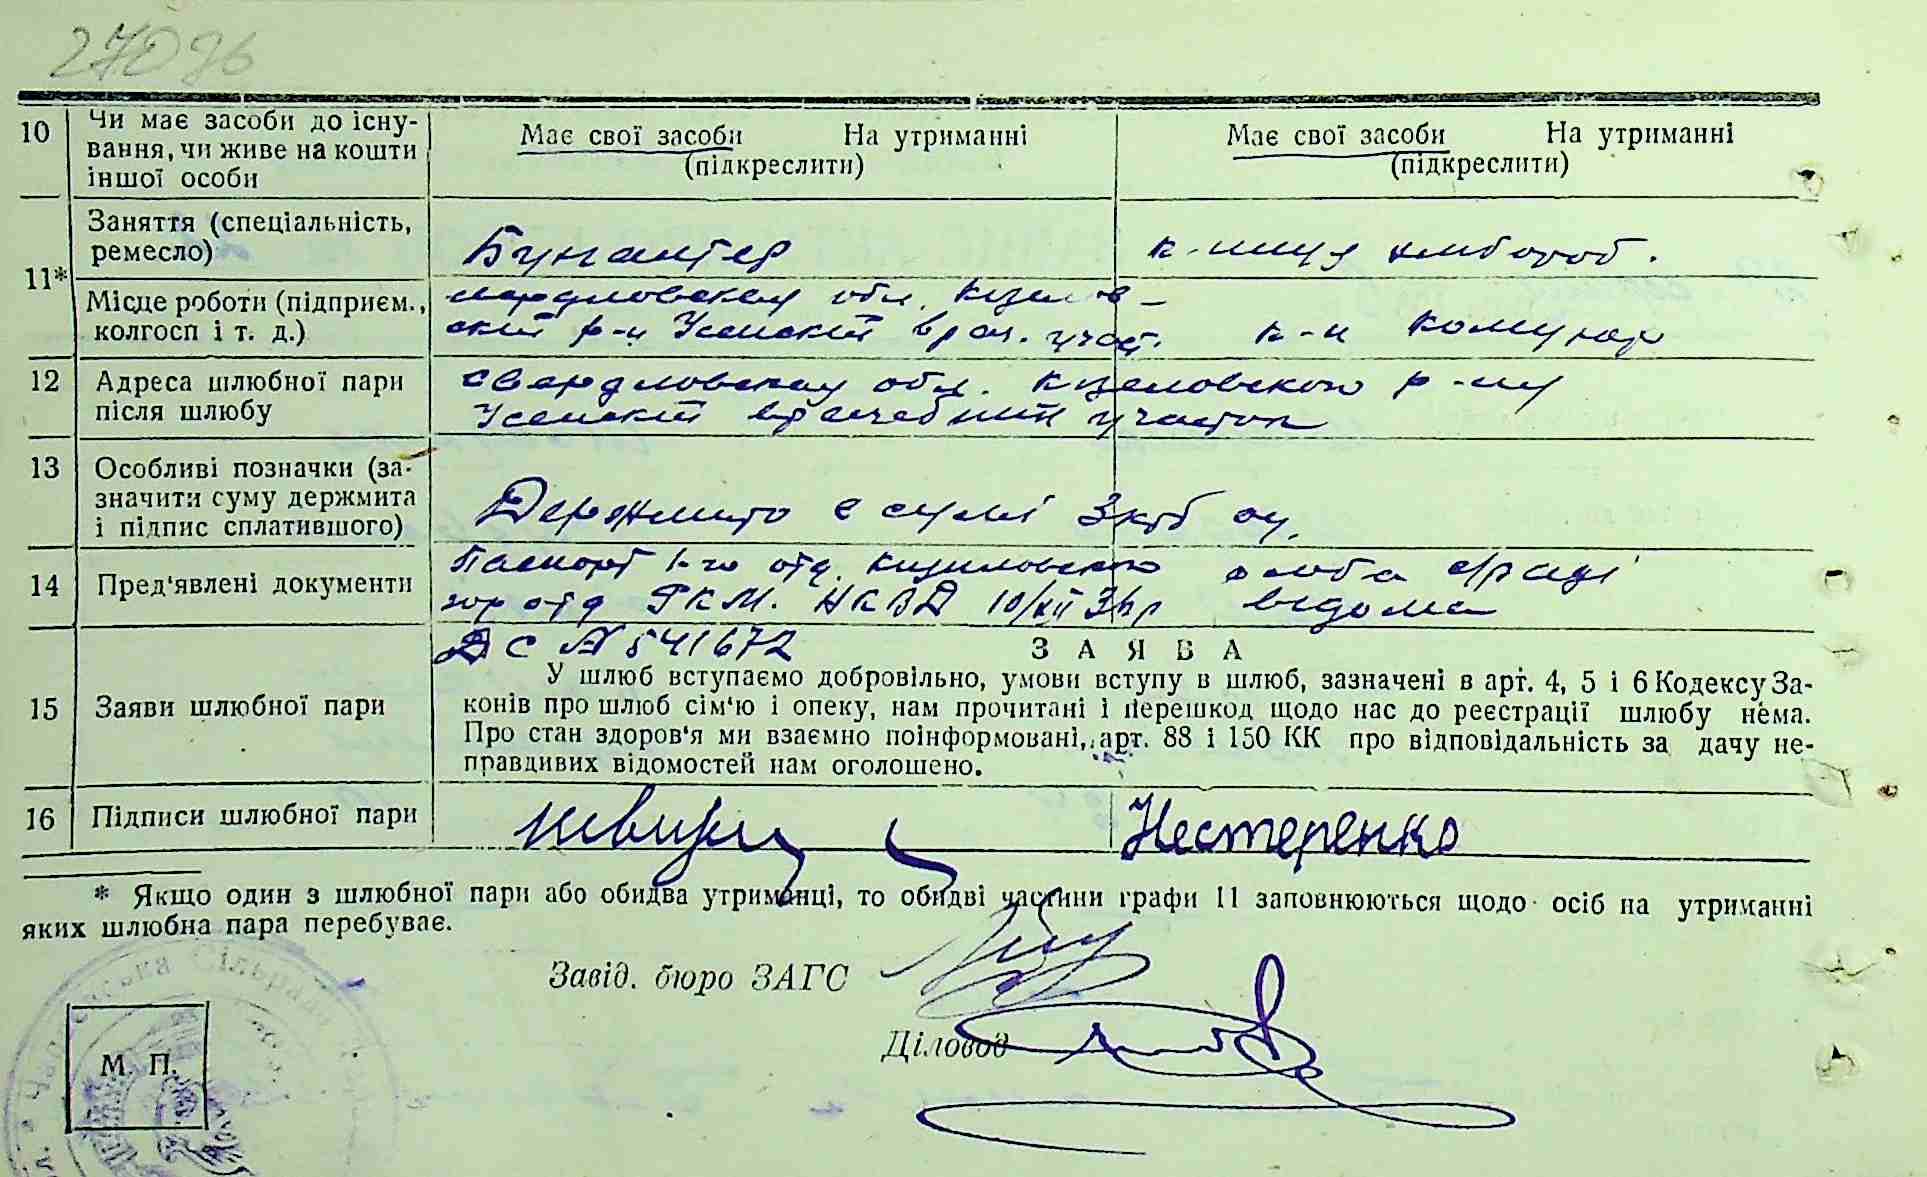 10 Чи має засоби до існу-
вання, чи живе на кошти
іншої особи
Має свої засоби На утриманні
(підкреслити)
Має свої засоби На утриманні
(підкреслити)
11* Заняття (спеціальність,
ремесло)
Бухгалтер
Місце роботи (підприєм.,
колгосп і т. д.)
обл.
р-н врач. участ.
к-п Комунар
12 Адреса шлюбної пари
після шлюбу
Свердловская обл. Кизеловского р-ну
врачебний участок
13 Особливі позначки (за-
значити суму держмита
і підпис сплатившого)
Держмито в сумі 3 крб
14 Пред'явлені документи
Паспорт 1-го отд. Кизиловского
гор отд РКМ. НКВД 10/XII
ДС № 541672
особа сільраді
відома
15 Заяви шлюбної пари
ЗАЯВА
У шлюб вступаємо добровільно, умови вступу в шлюб, зазначені в арт. 4, 5 і 6 Кодексу За-
конів про шлюб сім'ю і опеку, нам прочитані і перешкод щодо нас до реєстрації шлюбу нема.
Про стан здоров'я ми взаємно поінформовані, арт. 88 і 150 КК про відповідальність за дачу не-
правдивих відомостей нам оголошено.
16 Підписи шлюбної пари
Нестеренко
* Якщо один з шлюбної пари або обидва утриманці, то обидві частини графи 11 заповнюються щодо осіб на утриманні
яких шлюбна пара перебуває.
Завід. бюро ЗАГС
Діловод
М. П.
Сільрада